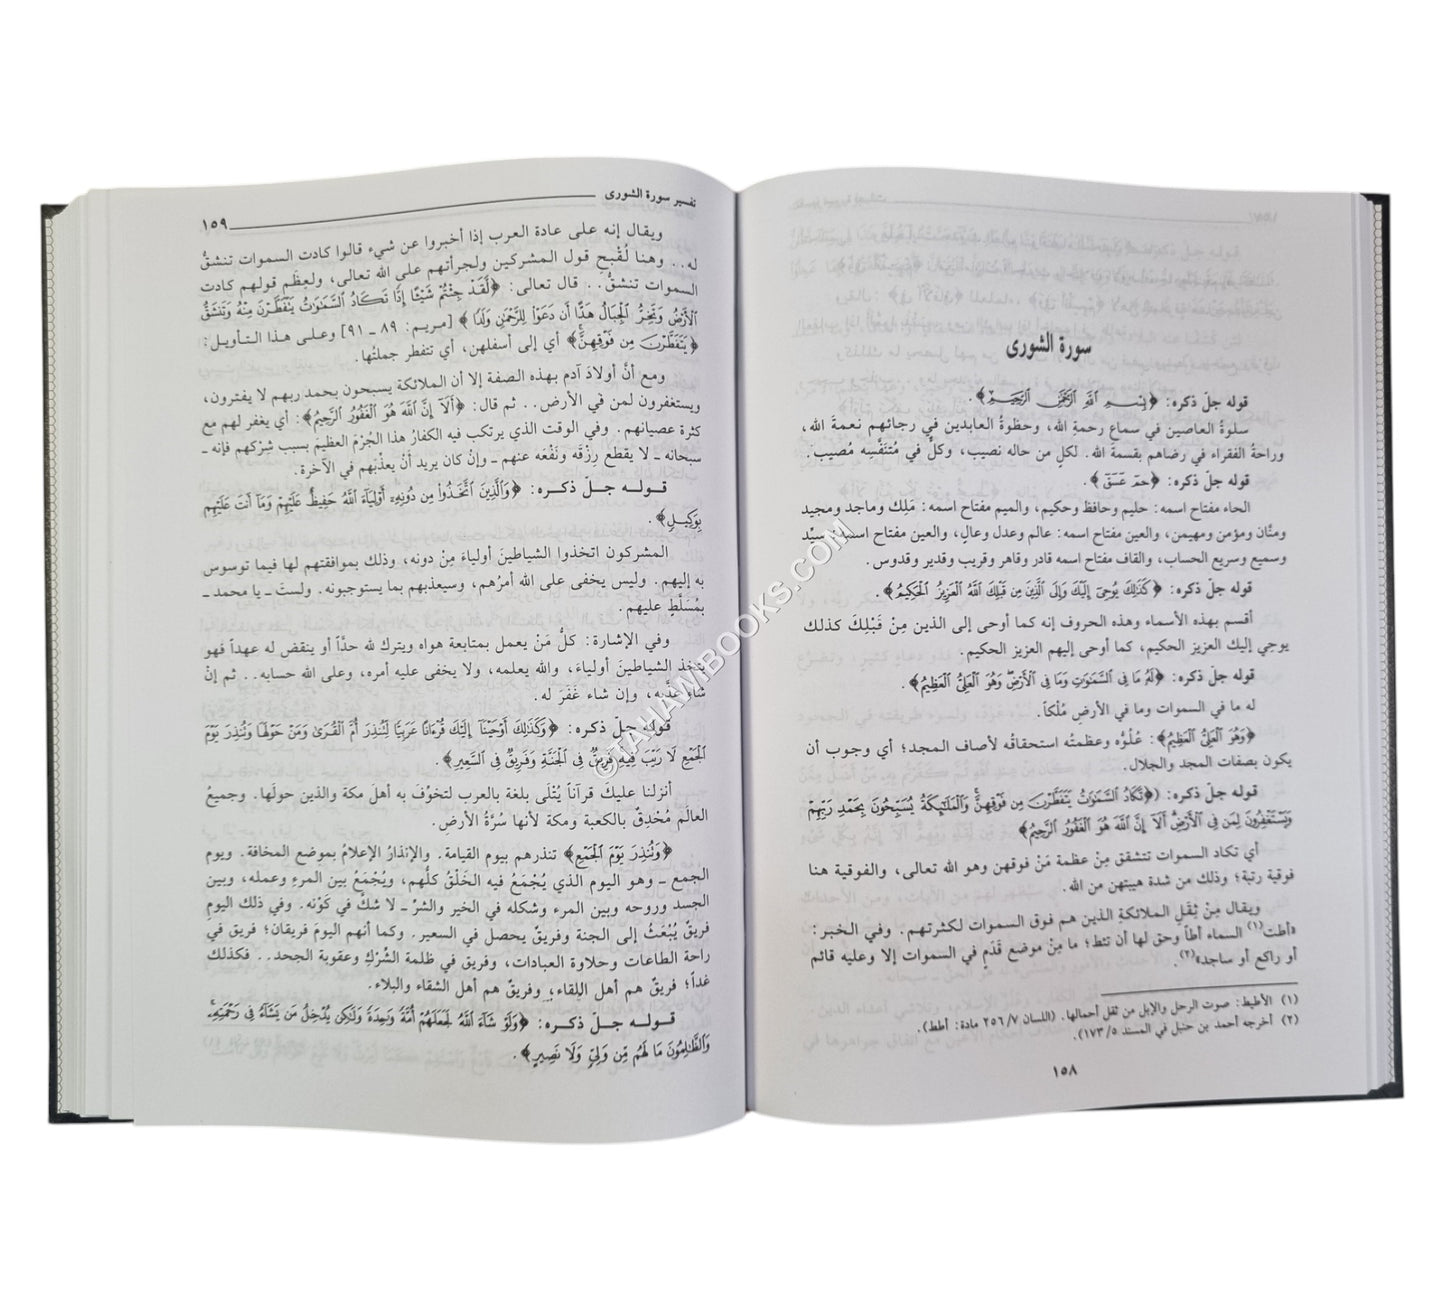 سورة الشورى
قوله جلّ ذكره: ﴿بِسْمِ اللَّهِ الرَّحْمَٰنِ الرَّحِيمِ﴾.
سلوةُ العاصين في سماعِ رحمةِ الله، وحظوةُ العابدين في رجائهم نعمةَ الله،
وراحةُ الفقراء في رضاهم بقسمة الله. لكلٍ من حاله نصيب، وكلٌّ في مُتنَفَّسِه مُصيب.
قوله جلّ ذكره: ﴿حمٓ عٓسٓقٓ﴾.
الحاء مفتاح اسمه: حليم وحافظ وحكيم، والميم مفتاح اسمه: مَلِك وماجد ومجيد
ومنَّان ومؤمن ومهيمن، والعين مفتاح اسمه: عالم وعدل وعالٍ، والعين مفتاح اسمه: سيِّد
وسميع وسريع الحساب، والقاف مفتاح اسمه قادر وقاهر وقريب وقدير وقدوس.
قوله جلّ ذكره: ﴿كَذَٰلِكَ يُوحِىٓ إِلَيْكَ وَإِلَى ٱلَّذِينَ مِن قَبْلِكَ ٱللَّهُ ٱلْعَزِيزُ ٱلْحَكِيمُ﴾.
أقسم بهذه الأسماء وهذه الحروف إنه كما أوحى إلى الذين مِنْ قَبْلِكَ كذلك
يوجي إليك العزيز الحكيم، كما أوحى إليهم العزيز الحكيم.
قوله جلّ ذكره: ﴿لَهُۥ مَا فِى ٱلسَّمَٰوَٰتِ وَمَا فِى ٱلْأَرْضِ وَهُوَ ٱلْعَلِىُّ ٱلْعَظِيمُ﴾.
له ما في السموات وما في الأرضِ مُلْكاً.
﴿وَهُوَ ٱلْعَلِىُّ ٱلْعَظِيمُ﴾: عُلُوُّه وعظمتُه استحقاقُه لأصاف المجد؛ أي وجوب أن
يكون بصفات المجد والجلال.
قوله جلّ ذكره: ﴿تَكَادُ ٱلسَّمَٰوَٰتُ يَتَفَطَّرْنَ مِن فَوْقِهِنَّ وَٱلْمَلَٰٓئِكَةُ يُسَبِّحُونَ بِحَمْدِ رَبِّهِمْ
وَيَسْتَغْفِرُونَ لِمَن فِى ٱلْأَرْضِ أَلَآ إِنَّ ٱللَّهَ هُوَ ٱلْغَفُورُ ٱلرَّحِيمُ﴾
أي تكاد السموات تتشقق مِنْ عظمة مَنْ فوقهن وهو الله تعالى، والفوقية هنا
فوقية رتبة؛ وذلك من شدة هيبتهن من الله.
ويقال مِنْ ثِقَلِ الملائكةِ الذين هم فوق السموات لكثرتهم. وفي الخبر:
«أطت(١) السماء أطاً وحق لها أن تئط؛ ما مِنْ موضع قَدَمٍ في السموات إلا وعليه قائم
أو راكع أو ساجد»(٢).
(١) الأطيط: صوت الرحل والإبل من ثقل أحمالها. (اللسان ٢٥٦/٧ مادة: أطط).
(٢) أخرجه أحمد بن حنبل في المسند ١٧٣/٥).
١٥٨
تفسير سورة الشورى
١٥٩
ويقال إنه على عادة العرب إذا أخبروا عن شيء قالوا كادت السموات تنشقُّ
له.. وهنا لُقْبح قول المشركين ولجرأتهم على الله تعالى، ولعِظَم قولهم كادت
السموات تنشقُّ.. قال تعالى: ﴿لَّقَدْ جِئْتُمْ شَيْـًٔا إِدًّا تَكَادُ ٱلسَّمَٰوَٰتُ يَتَفَطَّرْنَ مِنْهُ وَتَنشَقُّ
ٱلْأَرْضُ وَتَخِرُّ ٱلْجِبَالُ هَدًّا أَن دَعَوْا۟ لِلرَّحْمَٰنِ وَلَدًا﴾ [مريم: ٨٩ ـ ٩١] وعلى هذا التأويل:
﴿يَتَفَطَّرْنَ مِن فَوْقِهِنَّ﴾ أي إلى أسفلهن، أي تتفطر جملتُها.
ومع أنَّ أولادَ آدم بهذه الصفة إلا أن الملائكة يسبحون بحمد ربهم لا يفترون،
ويستغفرون لمن في الأرض.. ثم قال: ﴿أَلَآ إِنَّ ٱللَّهَ هُوَ ٱلْغَفُورُ ٱلرَّحِيمُ﴾: أي يغفر لهم مع
كثرة عصيانهم. وفي الوقت الذي يرتكب فيه الكفارُ هذا الجُرْمَ العظيمَ بسبب شِرْكهم فإنه ـ
سبحانه ـ لا يقطع رِزْقَه ونَفْعَه عنهم ـ وإنْ كان يريد أنْ يعذِّبَهم في الآخرة.
قوله جلّ ذكره: ﴿وَٱلَّذِينَ ٱتَّخَذُوا۟ مِن دُونِهِۦٓ أَوْلِيَآءَ ٱللَّهُ حَفِيظٌ عَلَيْهِمْ وَمَآ أَنتَ عَلَيْهِم
بِوَكِيلٍ﴾.
المشركون اتخذوا الشياطينَ أولياءَ مِنْ دونه، وذلك بموافقتهم لها فيما توسوس
به إليهم. وليس يخفى على الله أمرُهم، وسيعذبهم بما يستوجبونه. ولستَ ـ يا محمد ـ
بمُسَلَّطٍ عليهم.
وفي الإشارة: كلُّ مَنْ يعمل بمتابعة هواه ويترك لله حدَّاً أو ينقض له عهداً فهو
يتخذ الشياطينَ أولياءَ، والله يعلمه، ولا يخفى عليه أمره، وعلى الله حسابه.. ثم إنْ
شاء عذَّبه، وإن شاء غَفَرَ له.
قوله جلّ ذكره: ﴿وَكَذَٰلِكَ أَوْحَيْنَآ إِلَيْكَ قُرْءَانًا عَرَبِيًّا لِّتُنذِرَ أُمَّ ٱلْقُرَىٰ وَمَنْ حَوْلَهَا وَتُنذِرَ يَوْمَ
ٱلْجَمْعِ لَا رَيْبَ فِيهِ فَرِيقٌ فِى ٱلْجَنَّةِ وَفَرِيقٌ فِى ٱلسَّعِيرِ﴾.
أنزلنا عليكَ قرآناً يُتْلَى بلغة بالعرب لتخوِّفَ به أهلَ مكة والذين حولَها. وجميعُ
العالَم مُحْدِقٌ بالكعبة ومكة لأنها سُرَّةُ الأرض.
﴿وَتُنذِرَ يَوْمَ ٱلْجَمْعِ﴾ تنذرهم بيوم القيامة. والإنذارُ الإعلامُ بموضع المخافة. ويوم
الجمع ـ وهو اليوم الذي يُجْمَعُ فيه الخَلْقُ كلُّهم، ويُجْمَعُ بين المرءِ وعمله، وبين
الجسد وروحه وبين المرء وشكله في الخير والشرْ ـ لا شكَّ في كَوْنه. وفي ذلك اليومِ
فريقٌ يُبْعَثُ إلى الجنة وفريقٌ يحصل في السعير. وكما أنهم اليومَ فريقان؛ فريق في
راحة الطاعات وحلاوة العبادات، وفريق في ظلمة الشِّرْكِ وعقوبة الجحد.. فكذلك
غداً؛ فريقٌ هم أهل اللقاء، وفريقٌ هم أهل الشقاء والبلاء.
قوله جلّ ذكره: ﴿وَلَوْ شَآءَ ٱللَّهُ لَجَعَلَهُمْ أُمَّةً وَٰحِدَةً وَلَٰكِن يُدْخِلُ مَن يَشَآءُ فِى رَحْمَتِهِۦ
وَٱلظَّٰلِمُونَ مَا لَهُم مِّن وَلِىٍّ وَلَا نَصِيرٍ﴾.
©TAHAWIBOOKS.COM